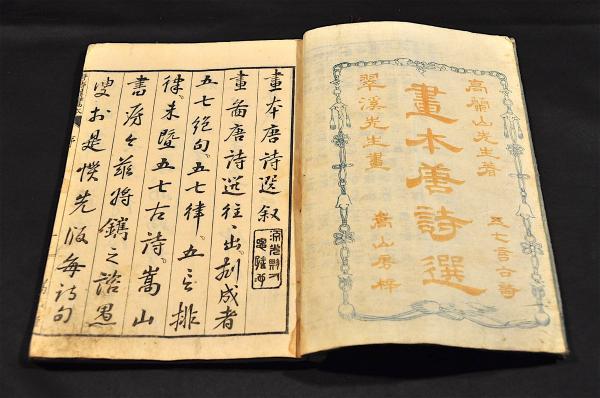 高蘭山先生著
五七言古詩
畫本唐詩選
翠溪先生畫
嵩山房梓
畫本唐詩選叙
畫啚唐詩選往々出。刻成者
五七絶句。五七律。五言排
律。未曁五七古詩。嵩山
書房今茲将鐫之諮愚
叟於是先版每詩句